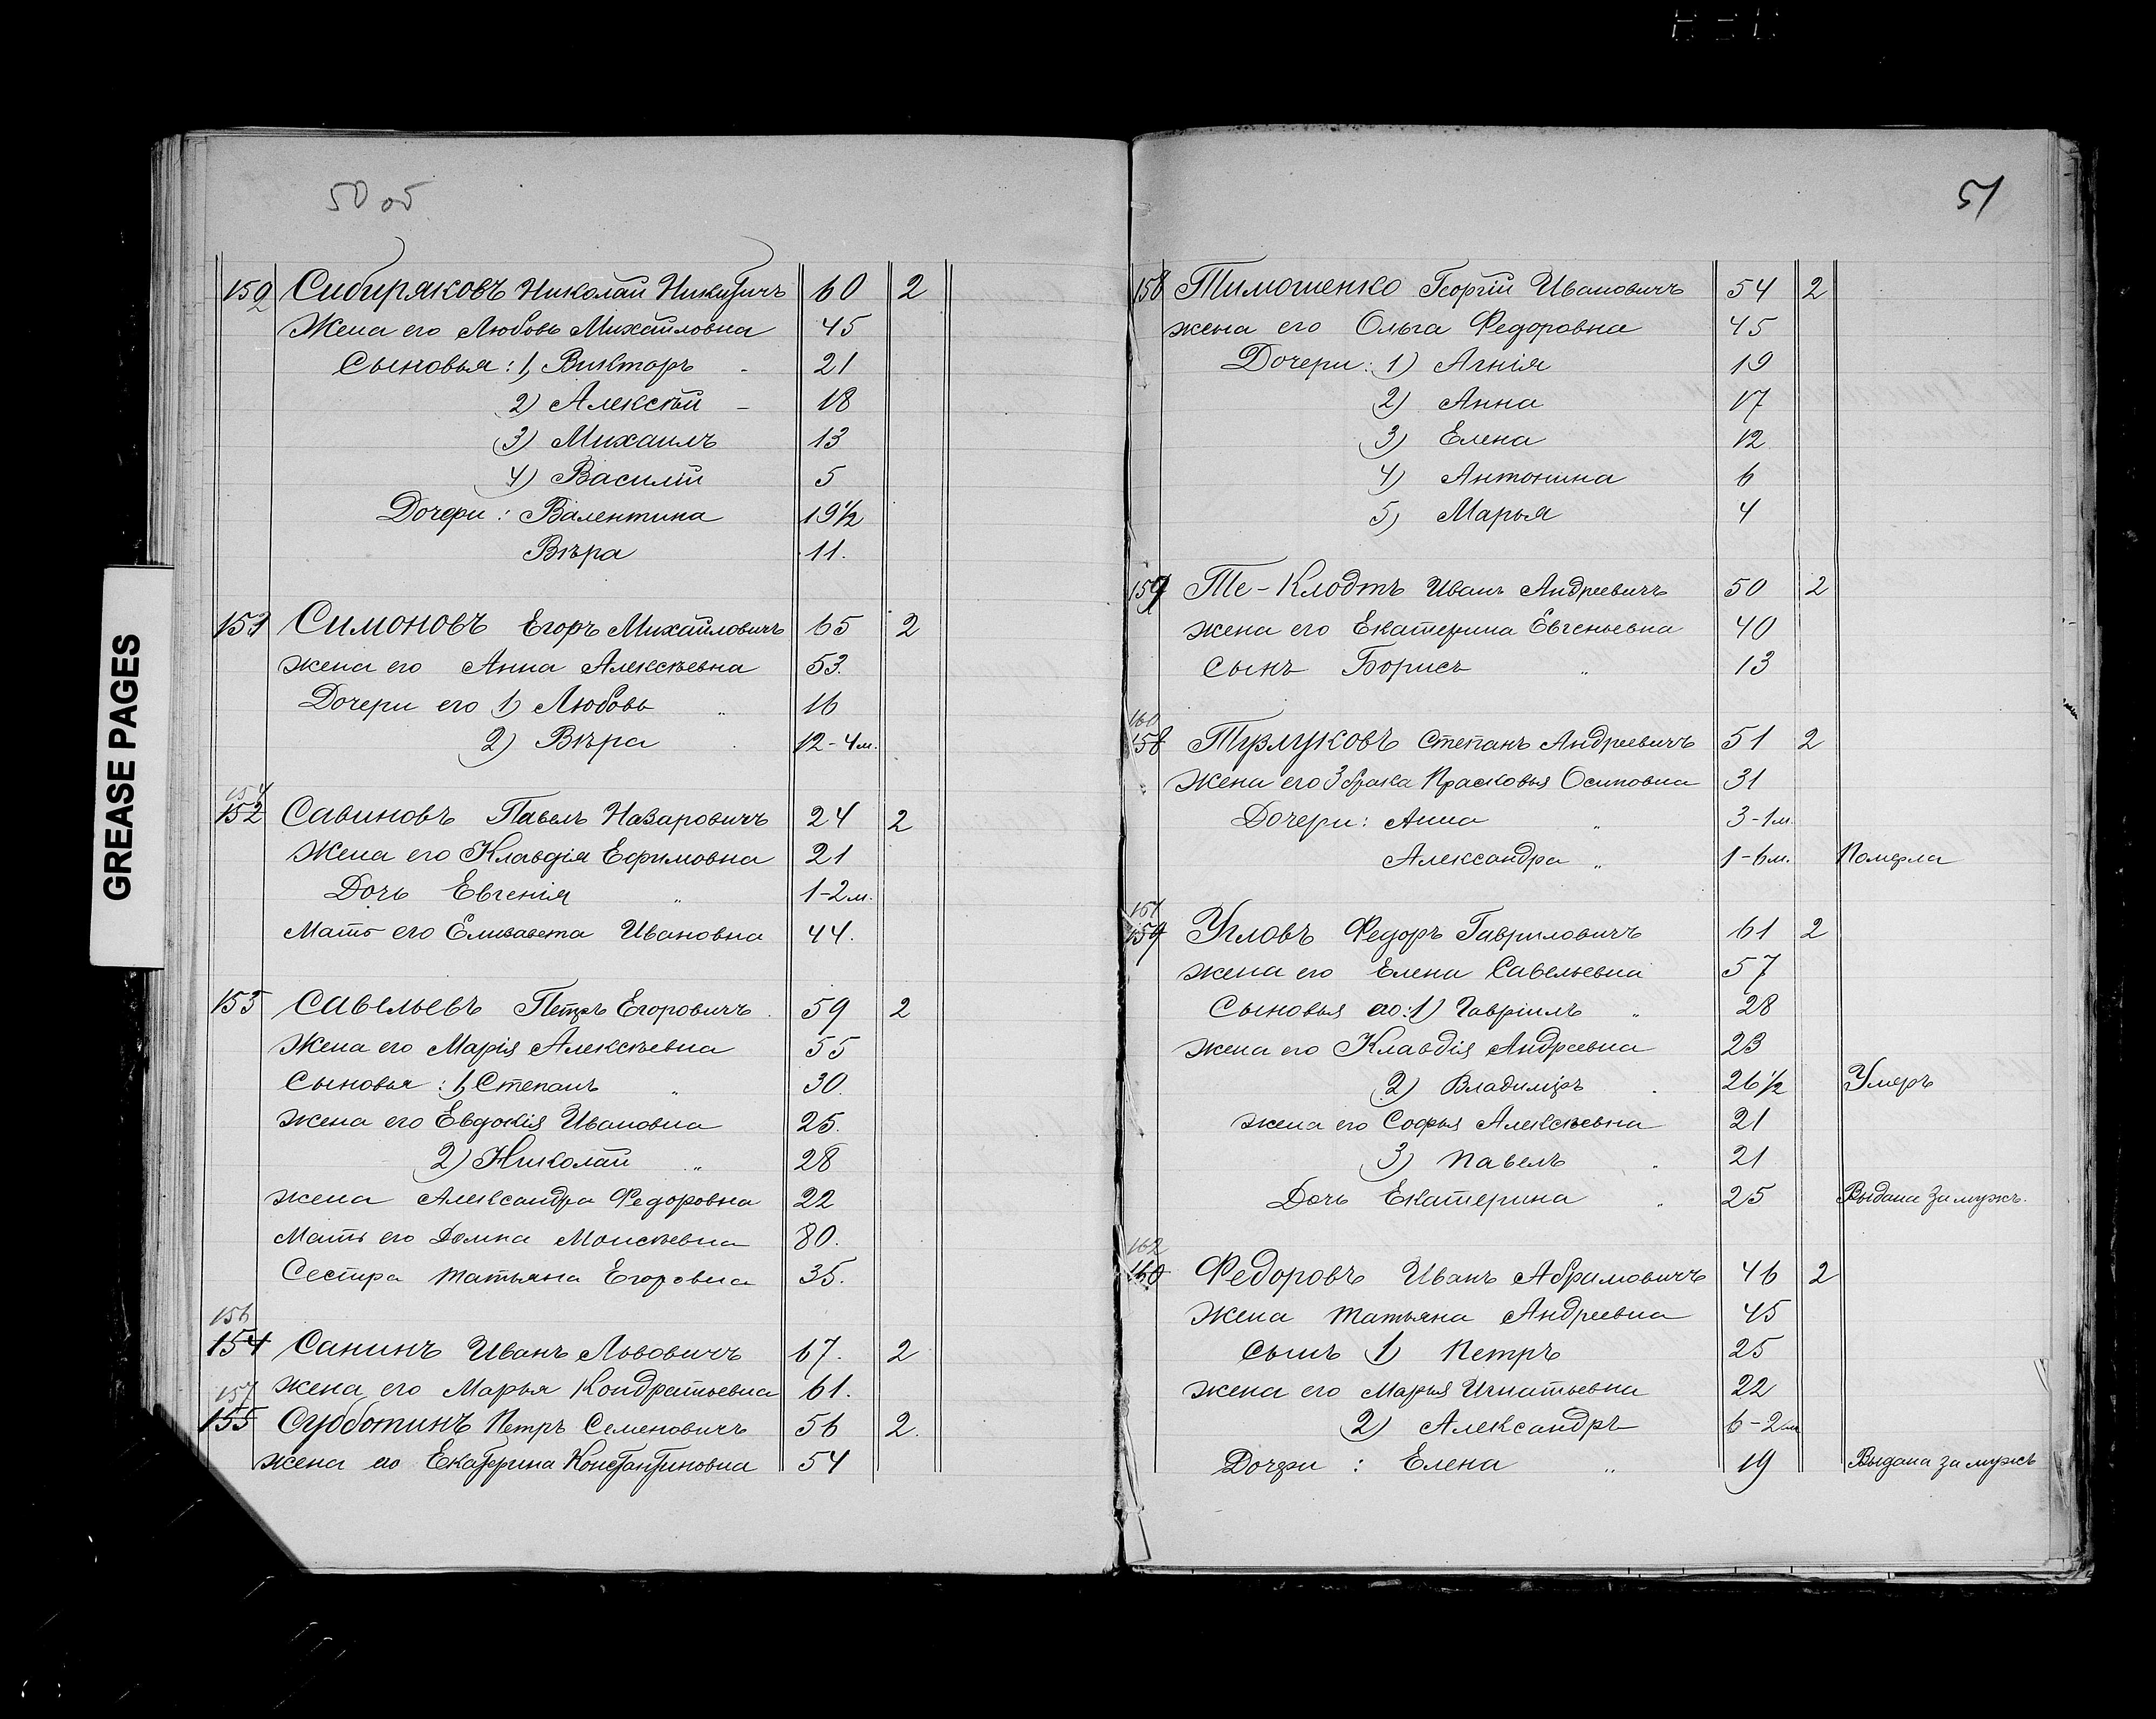 50 об
152 Сибиряковъ Николай Никитичъ 60 2
Жена его Любовь Михайловна 45
Сыновья: 1) Викторъ - 21
2) Алексѣй - 18
3) Михаилъ 13
4) Василій 5
Дочери: Валентина 19½
Вѣра 11.
153 Симоновъ Егоръ Михайловичъ 65 2
жена его Анна Алексѣевна 53.
Дочери его 1) Любовь „ 16
2) Вѣра 12-4м.
154
152 Савиновъ Павелъ Назаровичъ 24 2
Жена его Клавдія Ефимовна 21
Дочь Евгенія „ 1-2м.
Мать его Елизавета Ивановна 44.
155 Савельевъ Петръ Егоровичъ 59 2
Жена его Марія Алексѣевна 55
Сыновья: 1) Степанъ „ 30.
жена его Евдокія Ивановна 25.
2) Николай „ 28
жена Александра Федоровна 22
Мать его Домна Моисѣевна 80.
Сестра Татьяна Егоровна 35.
156
154 Санинъ Иванъ Львовичъ 67. 2
жена его Марья Кондратьевна 61.
157
155 Субботинъ Петръ Семеновичъ 56 2.
жена его Екатерина Константиновна 54
51
158 Тимошенко Георгій Ивановичъ 54 2
жена его Ольга Федоровна 45
Дочери: 1) Агнія 19
2) Анна 17
3) Елена 12
4) Антонина 6
5) Марья 4
159 Те-Клодтъ Иванъ Андреевичъ 50 2
жена его Екатерина Евгеньевна 40
Сынъ Борисъ „ 13
160
158 Тузлуковъ Степанъ Андреевичъ 51 2
Жена его 3 брака Прасковья Осиповна 31
Дочери: Анна „ 3-1м.
Александра „ 1-6м. Померла
161
159 Угловъ Федоръ Гавриловичъ 61 2
жена его Елена Савельевна 57
Сыновья его: 1) Гавріилъ „ 28
жена его Клавдія Андреевна 23
2) Владиміръ 26½ Умеръ
жена его Софья Алексѣевна 21
3) Павелъ 21
Дочь Екатерина „ 25 Выдана замужъ.
162
160 Федоровъ Иванъ Абрамовичъ 46 2
Жена Татьяна Андреевна 45
Сынъ 1) Петръ 25
жена его Марья Игнатьевна 22
2) Александръ 6-2м
Дочери: Елена „ 19 Выдана замужъ
GREASE PAGES